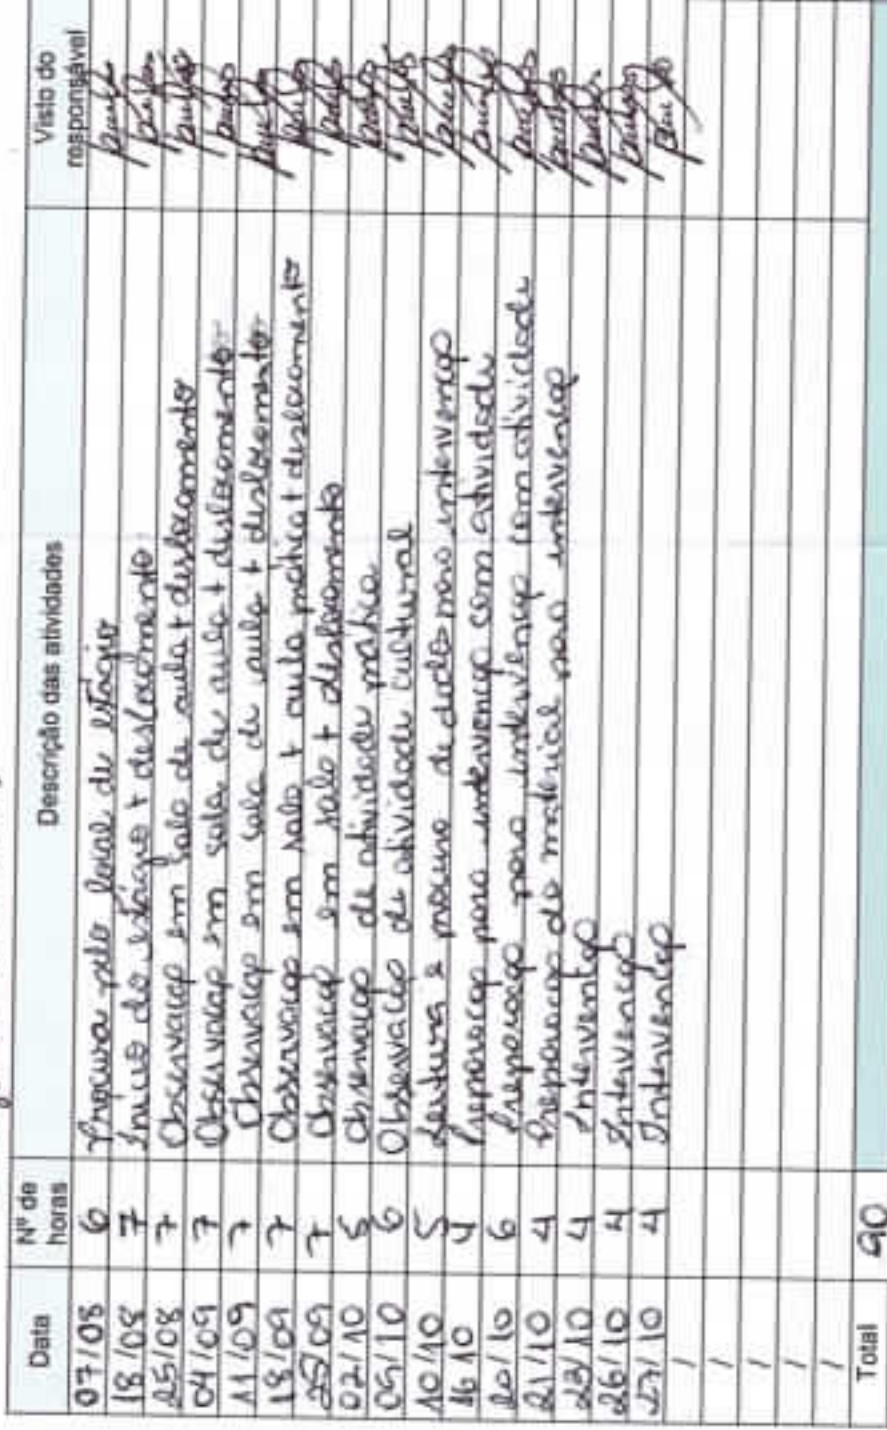 Data Nº de horas Descrição das atividades Visto do responsável
07/08 6 Procura pelo local de estágio
18/08 7 Início do estágio + deslocamento
25/08 7 Observação em sala de aula + deslocamento
04/09 7 Observação em sala de aula + deslocamento
11/09 7 Observação em sala de aula + deslocamento
18/09 7 Observação em sala + aula prática + deslocamento
25/09 7 Observação em sala + deslocamento
02/10 5 Observação de atividade prática
09/10 6 Observação de atividade cultural
10/10 5 Leitura e procura de dados para intervenção
16 10 4 Preparação para intervenção com atividade
20/10 6 Preparação para intervenção com atividade
21/10 4 Preparação do material para intervenção
23/10 4 Intervenção
26/10 4 Intervenção
27/10 4 Intervenção
/
/
/
/
/
Total 90